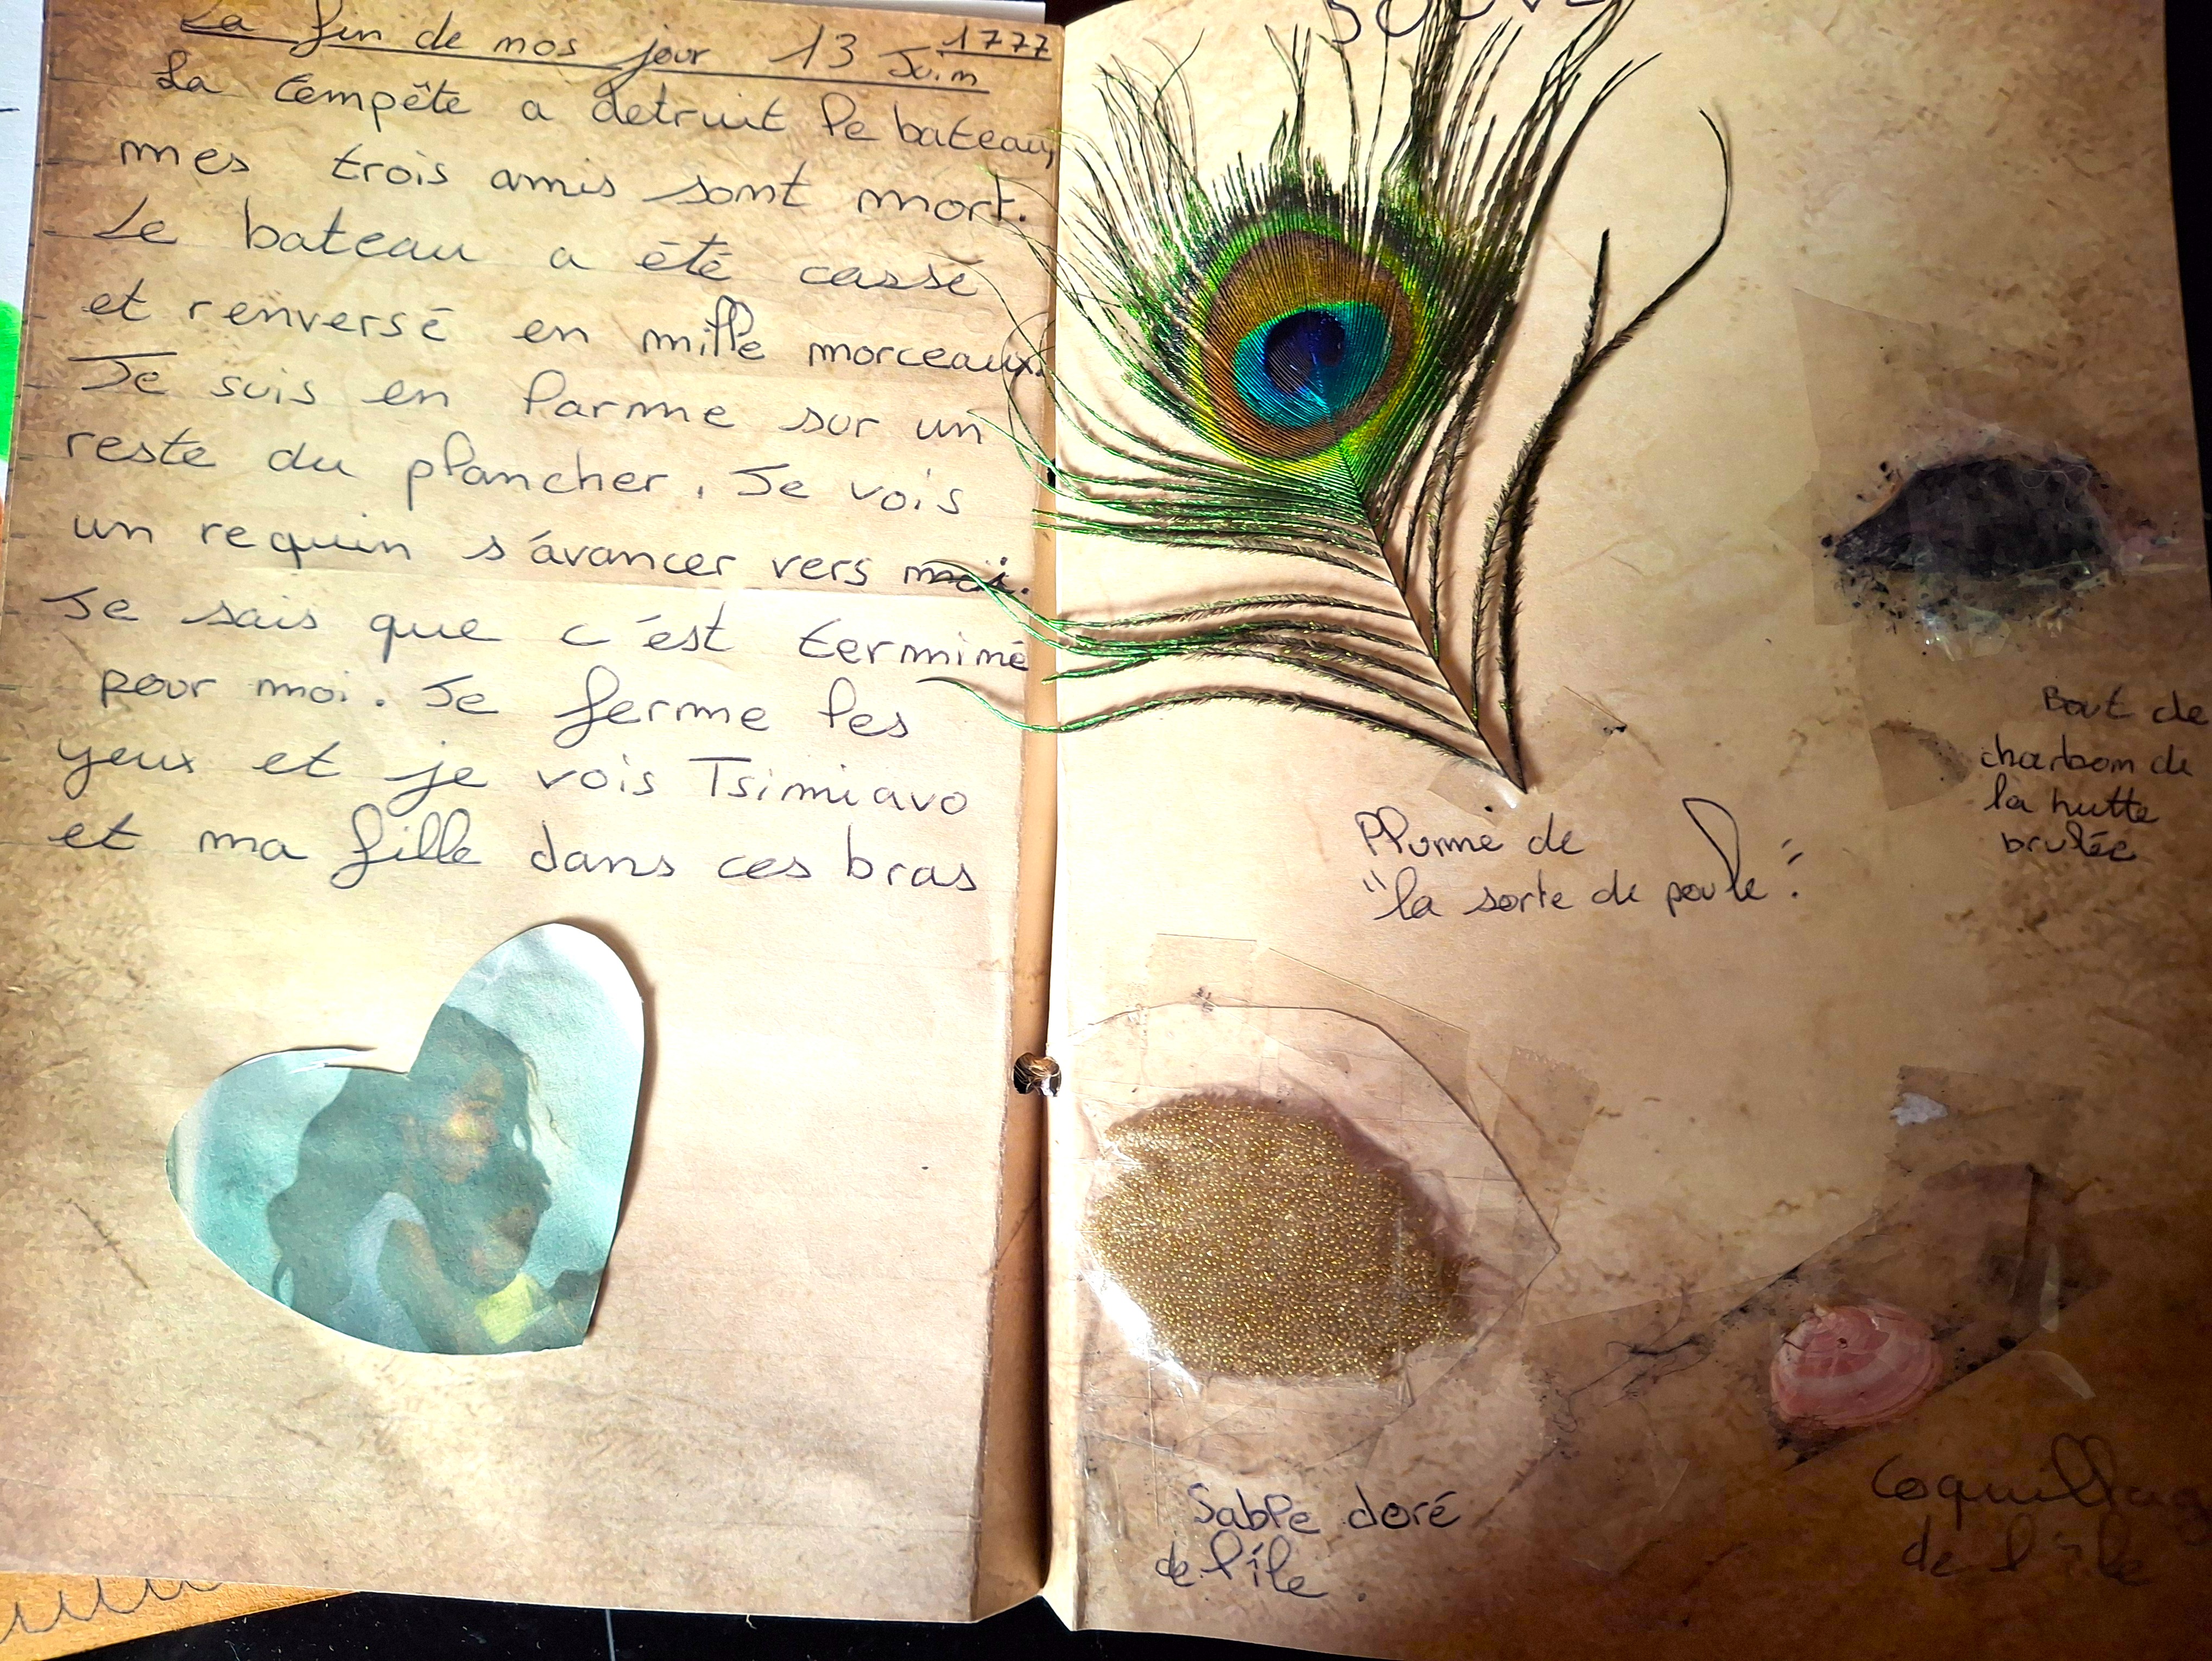 La fin de nos jour 13 Juin 1777
La tempête a detruit le bateau,
mes trois amis sont mort.
Le bateau a été cassé
et renversé en mille morceaux.
Je suis en larme sur un
reste du plancher. Je vois
un requin s'avancer vers moi.
Je sais que c'est terminé
pour moi. Je ferme les
yeux et je vois Tsimiavo
et ma fille dans ces bras
Plume de
"la sorte de poule".
Bout de
charbon de
la hutte
brulée
Sable doré
de l'île.
Coquillag
de l'île